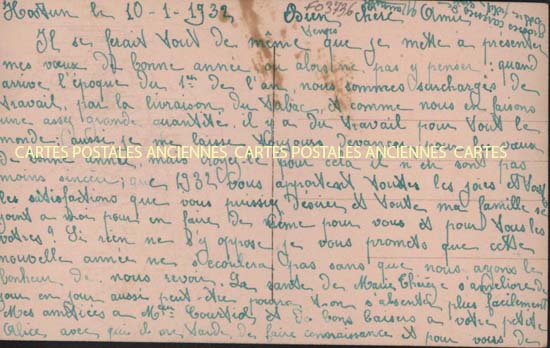 Hostun le 10-1-1932 Bien chère Amie
F03736
Il se ferait tout de même temps que je mette à présenter
mes vœux de bonne année ou alors ne pas y penser, quand
arrive l'époque du 1er de l'an, nous sommes surchargés de
travail, par la livraison du tabac, et comme nous en faisons
une assez grande quantité, il y a du travail pour tout le
monde; aussi je me laisse toujours devancer pour mes vœux
CARTES POSTALES ANCIENNES CARTES POSTALES ANCIENNES CARTES
de bonne année, mais pour cela ils n'en sont pas
moins sincères; que 1932 vous apportent toutes les joies et tout
les satisfactions que vous puissiez désirer et toute ma famille se
joint à moi pour en faire de même pour vous et pour tous les
vôtres. Si rien ne s'y oppose je vous promets que cette
nouvelle année ne s'écoulera pas sans que nous ayons le
bonheur de nous revoir. La santé de Marie Thérèse s'améliore de
jour en jour aussi peut-être pourra-t-on s'absenter plus facilement
Mes amitiés à Mme Courtial et de bons baisers à votre petite
Alice avec qui il me tarde de faire connaissance et pour vous de